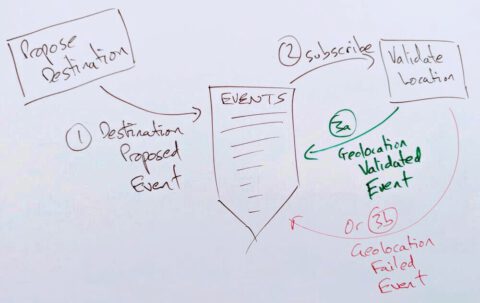 Propose
Destination
1 Destination
Proposed
Event
EVENTS
2 Subscribe
Validate
Location
3a
Geolocation
Validated
Event
Or 3b
Geolocation
Failed
Event